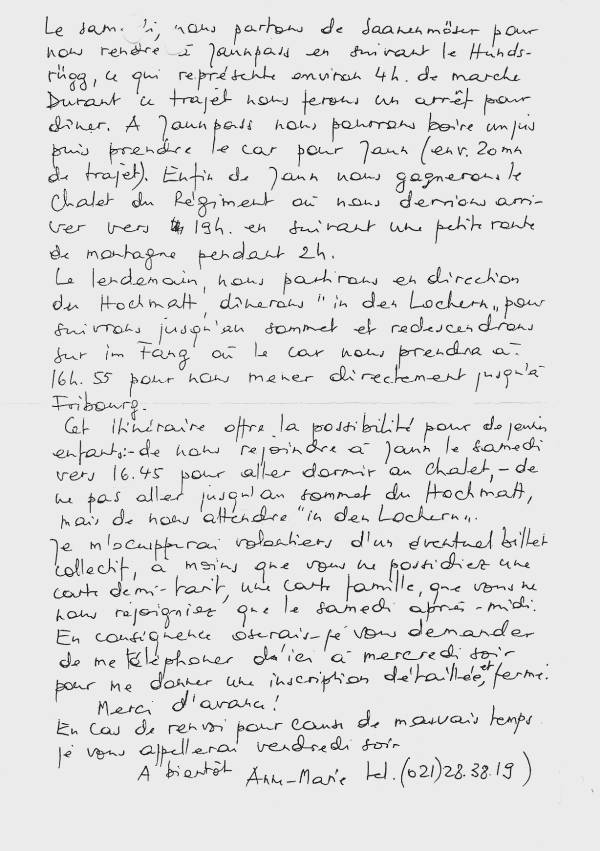 Le sam. 'i, nous partons de Saanenmöser pour
nous rendre à Jaunpass en suivant le Hunds-
rügg, ce qui représente environ 4h. de marche
Durant ce trajet nous ferons un arrêt pour
dîner. A Jaunpass nous pourrons boire un jus
puis prendre le car pour Jaun (env. 20mn
de trajet). Enfin de Jaun nous gagnerons le
Chalet du Régiment où nous devrions arri-
ver vers 19h. en suivant une petite route
de montagne pendant 2h.
Le lendemain, nous partirons en direction
du Hochmatt, dînerons "in den Lochern„ pour
suivrons jusqu'au sommet et redescendrons
sur im Fang où le car nous prendra à
16h.55 pour nous mener directement jusqu'à
Fribourg.
Cet itinéraire offre la possibilité pour de jeunes
enfants:-de nous rejoindre à Jaun le samedi
vers 16.45 pour aller dormir au Chalet,-de
ne pas aller jusqu'au sommet du Hochmatt,
mais de nous attendre "in den Lochern„.
Je m'occupperai volontiers d'un éventuel billet
collectif, à moins que vous ne possédiez une
carte demi-tarif, une carte famille, que vous ne
nous rejoigniez que le samedi après-midi.
En conséquence oserais-je vous demander
de me téléphoner d'ici à mercredi soir
pour me donner une inscription détaillée, et ferme.
Merci d'avance!
En cas de renvoi pour cause de mauvais temps
je vous appellerai vendredi soir
A bientôt Anne-Marie tel.(021)28.38.19)